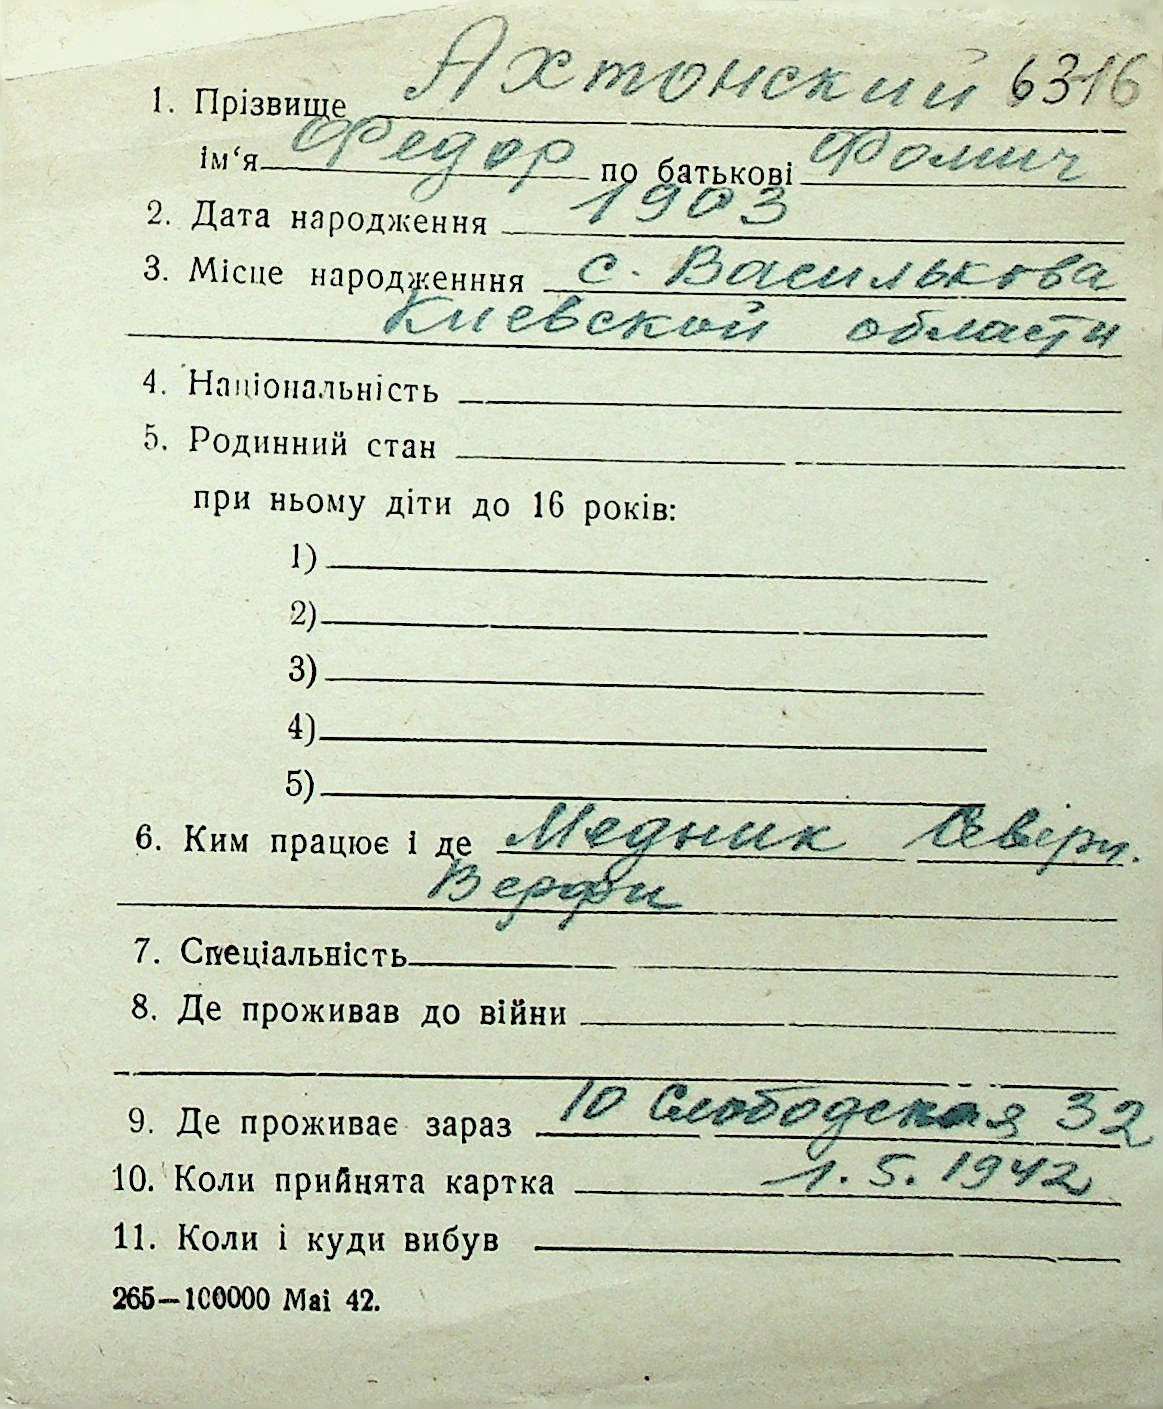 1. Прізвище Ахтонский 6316
ім‘я Федор по батькові Фомич
2. Дата народження 1903
3. Місце народженння с. Василькова
Киевской области
4. Національність
5. Родинний стан
при ньому діти до 16 років:
1)
2)
3)
4)
5)
6. Ким працює і де Медник Северн.
Верфи
7. Спеціальність
8. Де проживав до війни
9. Де проживає зараз 10 Слободская 32
10. Коли прийнята картка 1.5.1942
11. Коли і куди вибув
265—100000 Mai 42.